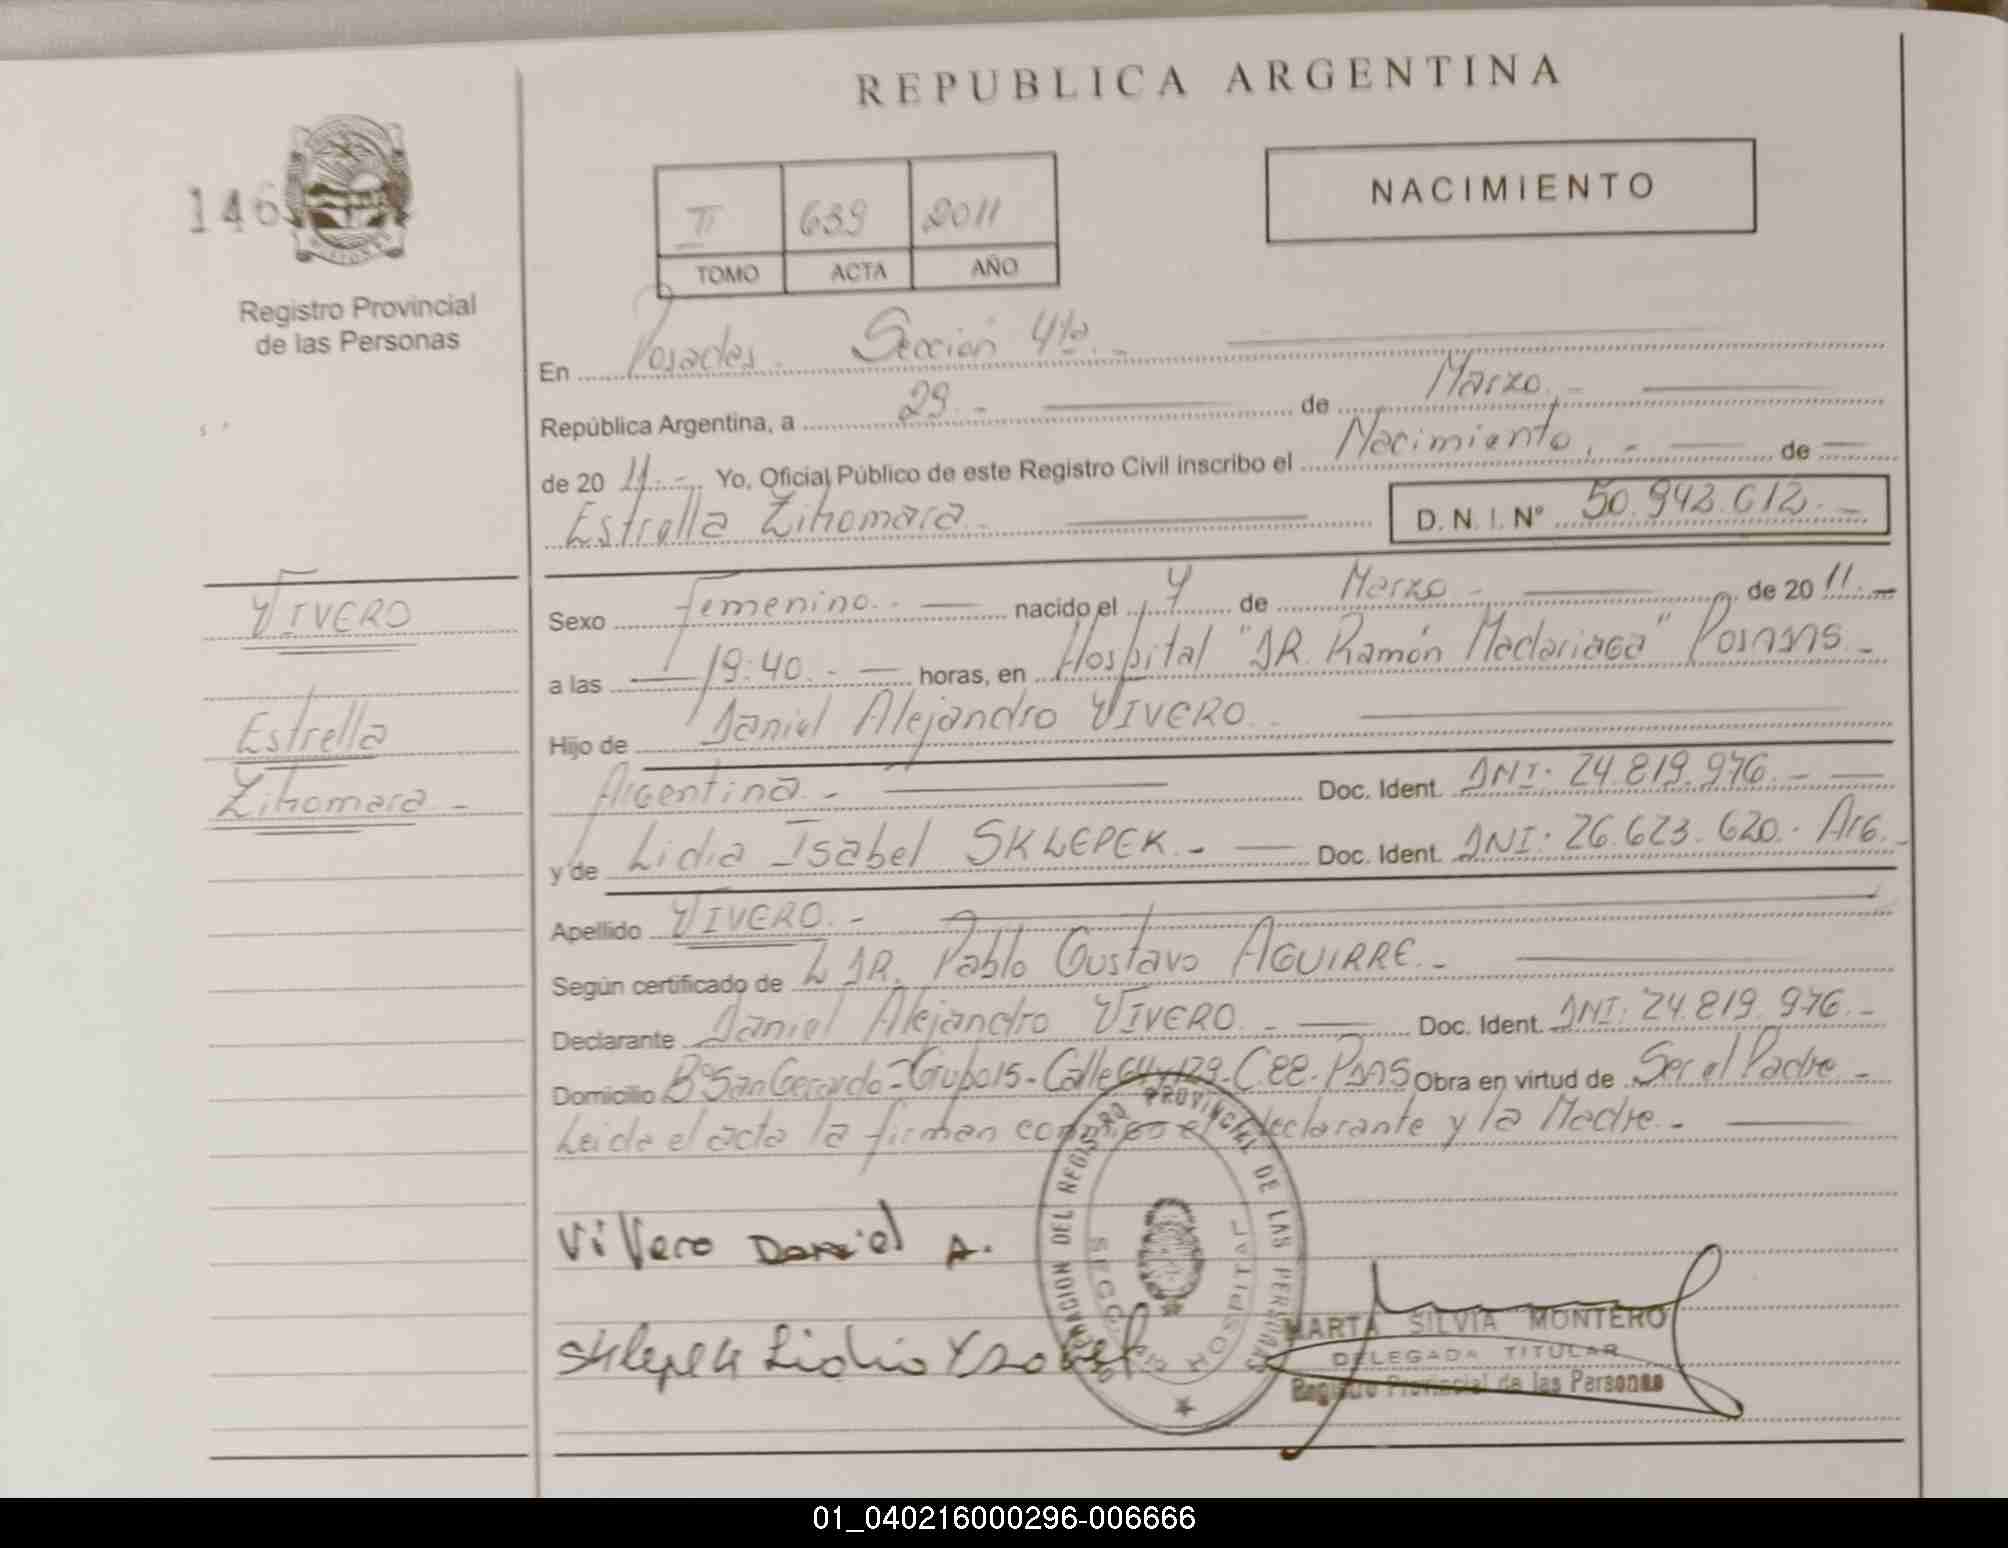 REPUBLICA ARGENTINA
146
Registro Provincial
de las Personas
II 639 2011
TOMO ACTA AÑO
NACIMIENTO
En Posadas. Sección 4ta.-
República Argentina, a 29.- de Marzo.-
de 20 11.- Yo, Oficial Público de este Registro Civil inscribo el Nacimiento.- de
Estrella Zihomara.- D. N. I. Nº 50.942.612.-
VIVERO
Estrella
Zihomara -
Sexo Femenino.- nacido el 4 de Marzo - de 20 11.-
a las 19:40.- horas, en Hospital "DR. Ramón Madariaga" Posadas.-
Hijo de Daniel Alejandro VIVERO.
Argentina.- Doc. Ident. DNI. 24.819.976.-
y de Lidia Isabel SKLEPEK.- Doc. Ident. DNI. 26.623.620.- Arg.-
Apellido VIVERO.-
Según certificado de DR. Pablo Gustavo AGUIRRE.-
Declarante Daniel Alejandro VIVERO.- Doc. Ident. DNI. 24.819.976.-
Domicilio Bº San Gerardo - Grupo 15 - Calle 64 y 129 - C Obra en virtud de Ser el Padre -
Leida el acta la firman conmigo el declarante y la Madre.-
ViVero Daniel A.
Sklepek Lidia Ysabel
REGISTRO PROVINCIAL DE LAS PERSONAS
SECC. HOSPITAL
MARTA SILVIA MONTERO
DELEGADA TITULAR
Registro Provincial de las Personas
01_040216000296-006666